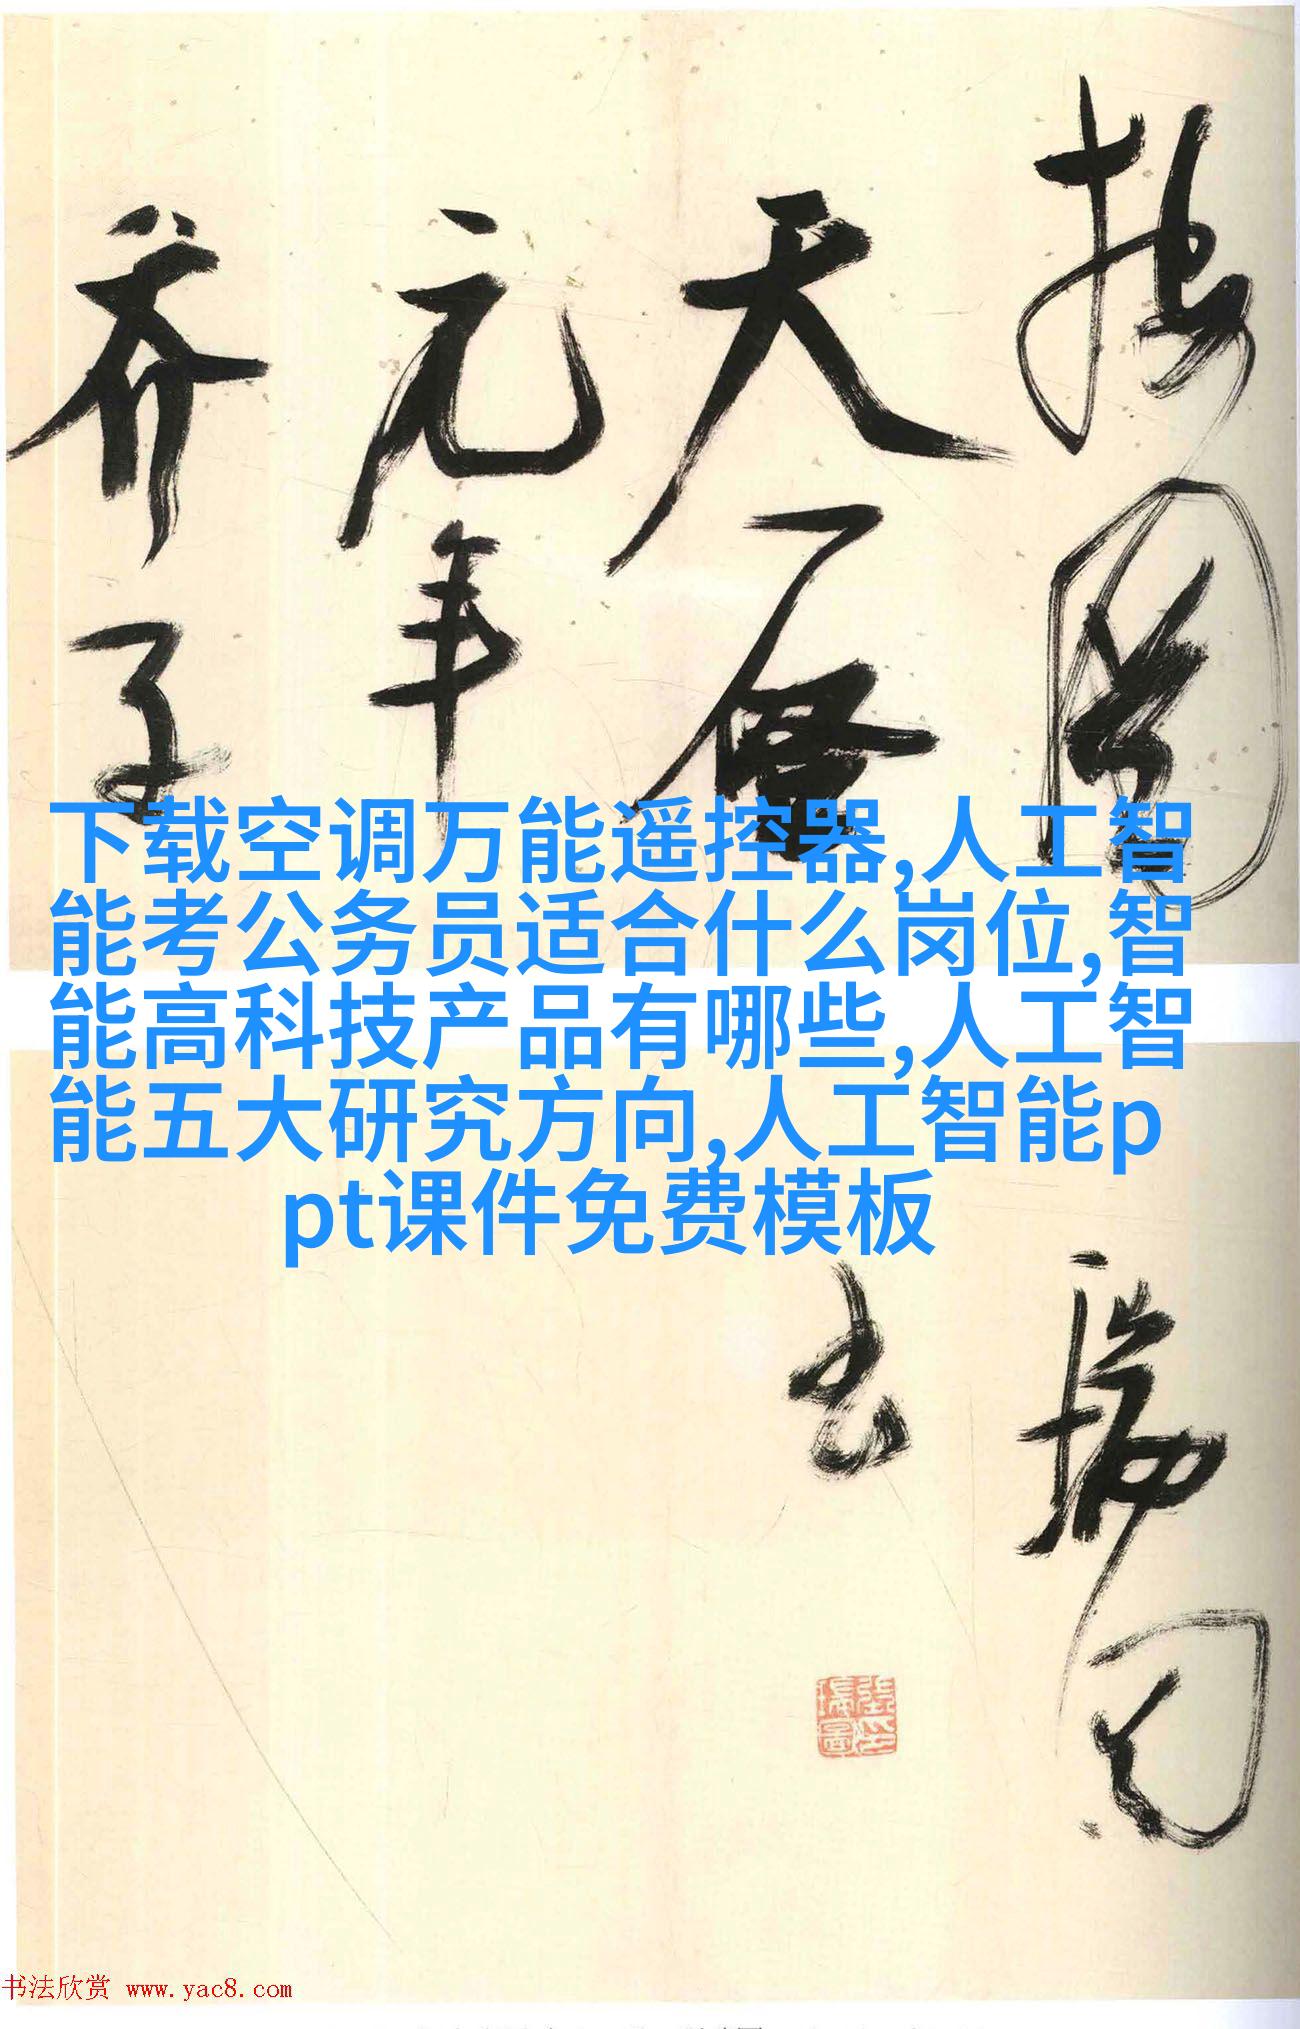 天啟
元年
齐子
下载空调万能遥控器,人工智
能考公务员适合什么岗位,智
能高科技产品有哪些,人工智
能五大研究方向,人工智能p
pt课件免费模板
书法欣赏 www.yac8.com